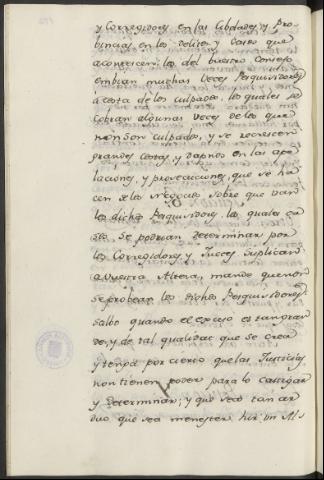 y Corregidores, en las Cibdades, y Pro-
bincias, en los delitos, y casos que
acontescen: los del buestro Consejo
embian muchas veces Pesquisidores
à costa de los culpados, los quales se
cobran algunas veces de los que
non son culpados, y se recrescen
grandes costas, y daños en las ape-
laciones, y prosecuciones, que se ha-
cen de los negocios sobre que van
los dichos Pesquisidores, los quales ca-
sos se podrian determinar por
los Corregidores, y Jueces: Suplican
a vuestra Alteza, mande que non
se probean los dichos Pesquisidores,
salbo quando el exceso es tan gran-
de, y de tal qualidad que se crea
y tenga por cierto que las Justicias
non tienen poder para lo castigar
y determinar; y que sea tan ar-
duo que sea menester hir un Al-